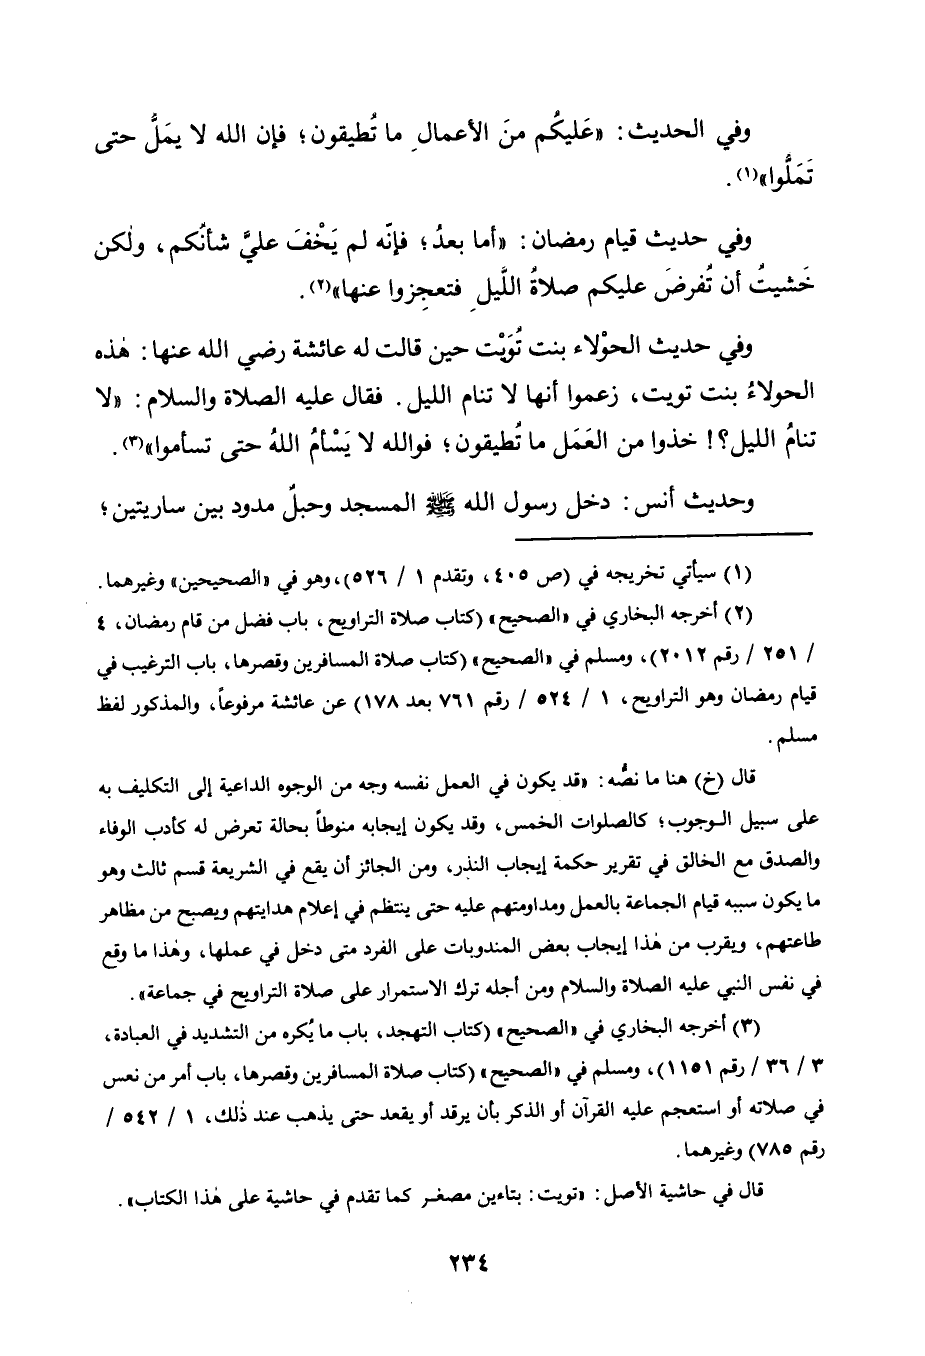 وفي الحديث: «عَليكُم منَ الأعمالِ ما تُطيقون؛ فإن الله لا يمَلُّ حتى
تَمَلُّوا»(١).
وفي حديث قيام رمضان: «أما بعدُ؛ فإنّه لم يَخْفَ عليَّ شأنُكم، ولٰكن
خَشيتُ أن تُفرضَ عليكم صلاةُ اللَّيلِ فتعجِزوا عنها»(٢).
وفي حديث الحوْلاء بنت تُوَيْت حين قالت له عائشة رضي الله عنها: هٰذه
الحولاءُ بنت تويت، زعموا أنها لا تنام الليل. فقال عليه الصلاة والسلام: «لا
تنامُ الليل؟! خذوا من العَمَل ما تُطيقون؛ فوالله لا يَسْأمُ اللهُ حتى تسأموا»(٣).
وحديث أنس: دخل رسول الله ﷺ المسجد وحبلٌ مدود بين ساريتين؛
(١) سيأتي تخريجه في (ص ٤٠٥، وتقدم ١ / ٥٢٦)، وهو في «الصحيحين» وغيرهما.
(٢) أخرجه البخاري في «الصحيح» (كتاب صلاة التراويح، باب فضل من قام رمضان، ٤
/ ٢٥١ / رقم ٢٠١٢)، ومسلم في «الصحيح» (كتاب صلاة المسافرين وقصرها، باب الترغيب في
قيام رمضان وهو التراويح، ١ / ٥٢٤ / رقم ٧٦١ بعد ١٧٨) عن عائشة مرفوعاً، والمذكور لفظ
مسلم.
قال (خ) هنا ما نصُّه: «قد يكون في العمل نفسه وجه من الوجوه الداعية إلى التكليف به
على سبيل الوجوب؛ كالصلوات الخمس، وقد يكون إيجابه منوطاً بحالة تعرض له كأدب الوفاء
والصدق مع الخالق في تقرير حكمة إيجاب النذر، ومن الجائز أن يقع في الشريعة قسم ثالث وهو
ما يكون سببه قيام الجماعة بالعمل ومداومتهم عليه حتى ينتظم في إعلام هدايتهم ويصبح من مظاهر
طاعتهم، ويقرب من هٰذا إيجاب بعض المندوبات على الفرد متى دخل في عملها، وهٰذا ما وقع
في نفس النبي عليه الصلاة والسلام ومن أجله ترك الاستمرار على صلاة التراويح في جماعة».
(٣) أخرجه البخاري في «الصحيح» (كتاب التهجد، باب ما يُكره من التشديد في العبادة،
٣ / ٣٦ / رقم ١١٥١)، ومسلم في «الصحيح» (كتاب صلاة المسافرين وقصرها، باب أمر من نعس
في صلاته أو استعجم عليه القرآن أو الذكر بأن يرقد أو يقعد حتى يذهب عند ذٰلك، ١ / ٥٤٢ /
رقم ٧٨٥) وغيرهما.
قال في حاشية الأصل: «تويت: بتاءين مصغر كما تقدم في حاشية على هٰذا الكتاب».
٢٣٤